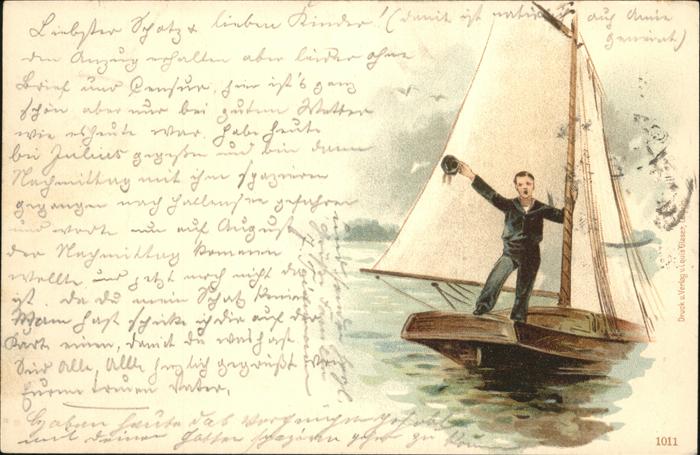 Liebster Schatz & lieben Kinder! (damit ist auch Annie
gemeint)
den Anzug erhalten aber leider ohne
Brief und Censur, hier ist's ganz
schön aber nur bei gutem Wetter
wie es heute war. Habe heute
bei Julius gegessen und bin dann
Nachmittag mit ihm spazieren
gegangen nach Hallensee gefahren
und warte nun auf August
der Nachmittag kommen
wollte und jetzt noch nicht da
ist. Da du mein Schatz keinen
Mann hast schicke ich dir auf der
Karte einen, damit du was hast
Seid Alle, Alle herzlich gegrüßt von
Eurem treuen Vater,
Haben heute das Vergnügen gehabt
mit deinem spazieren gehen zu
Druck u. Verlag v. Louis Glaser
1011